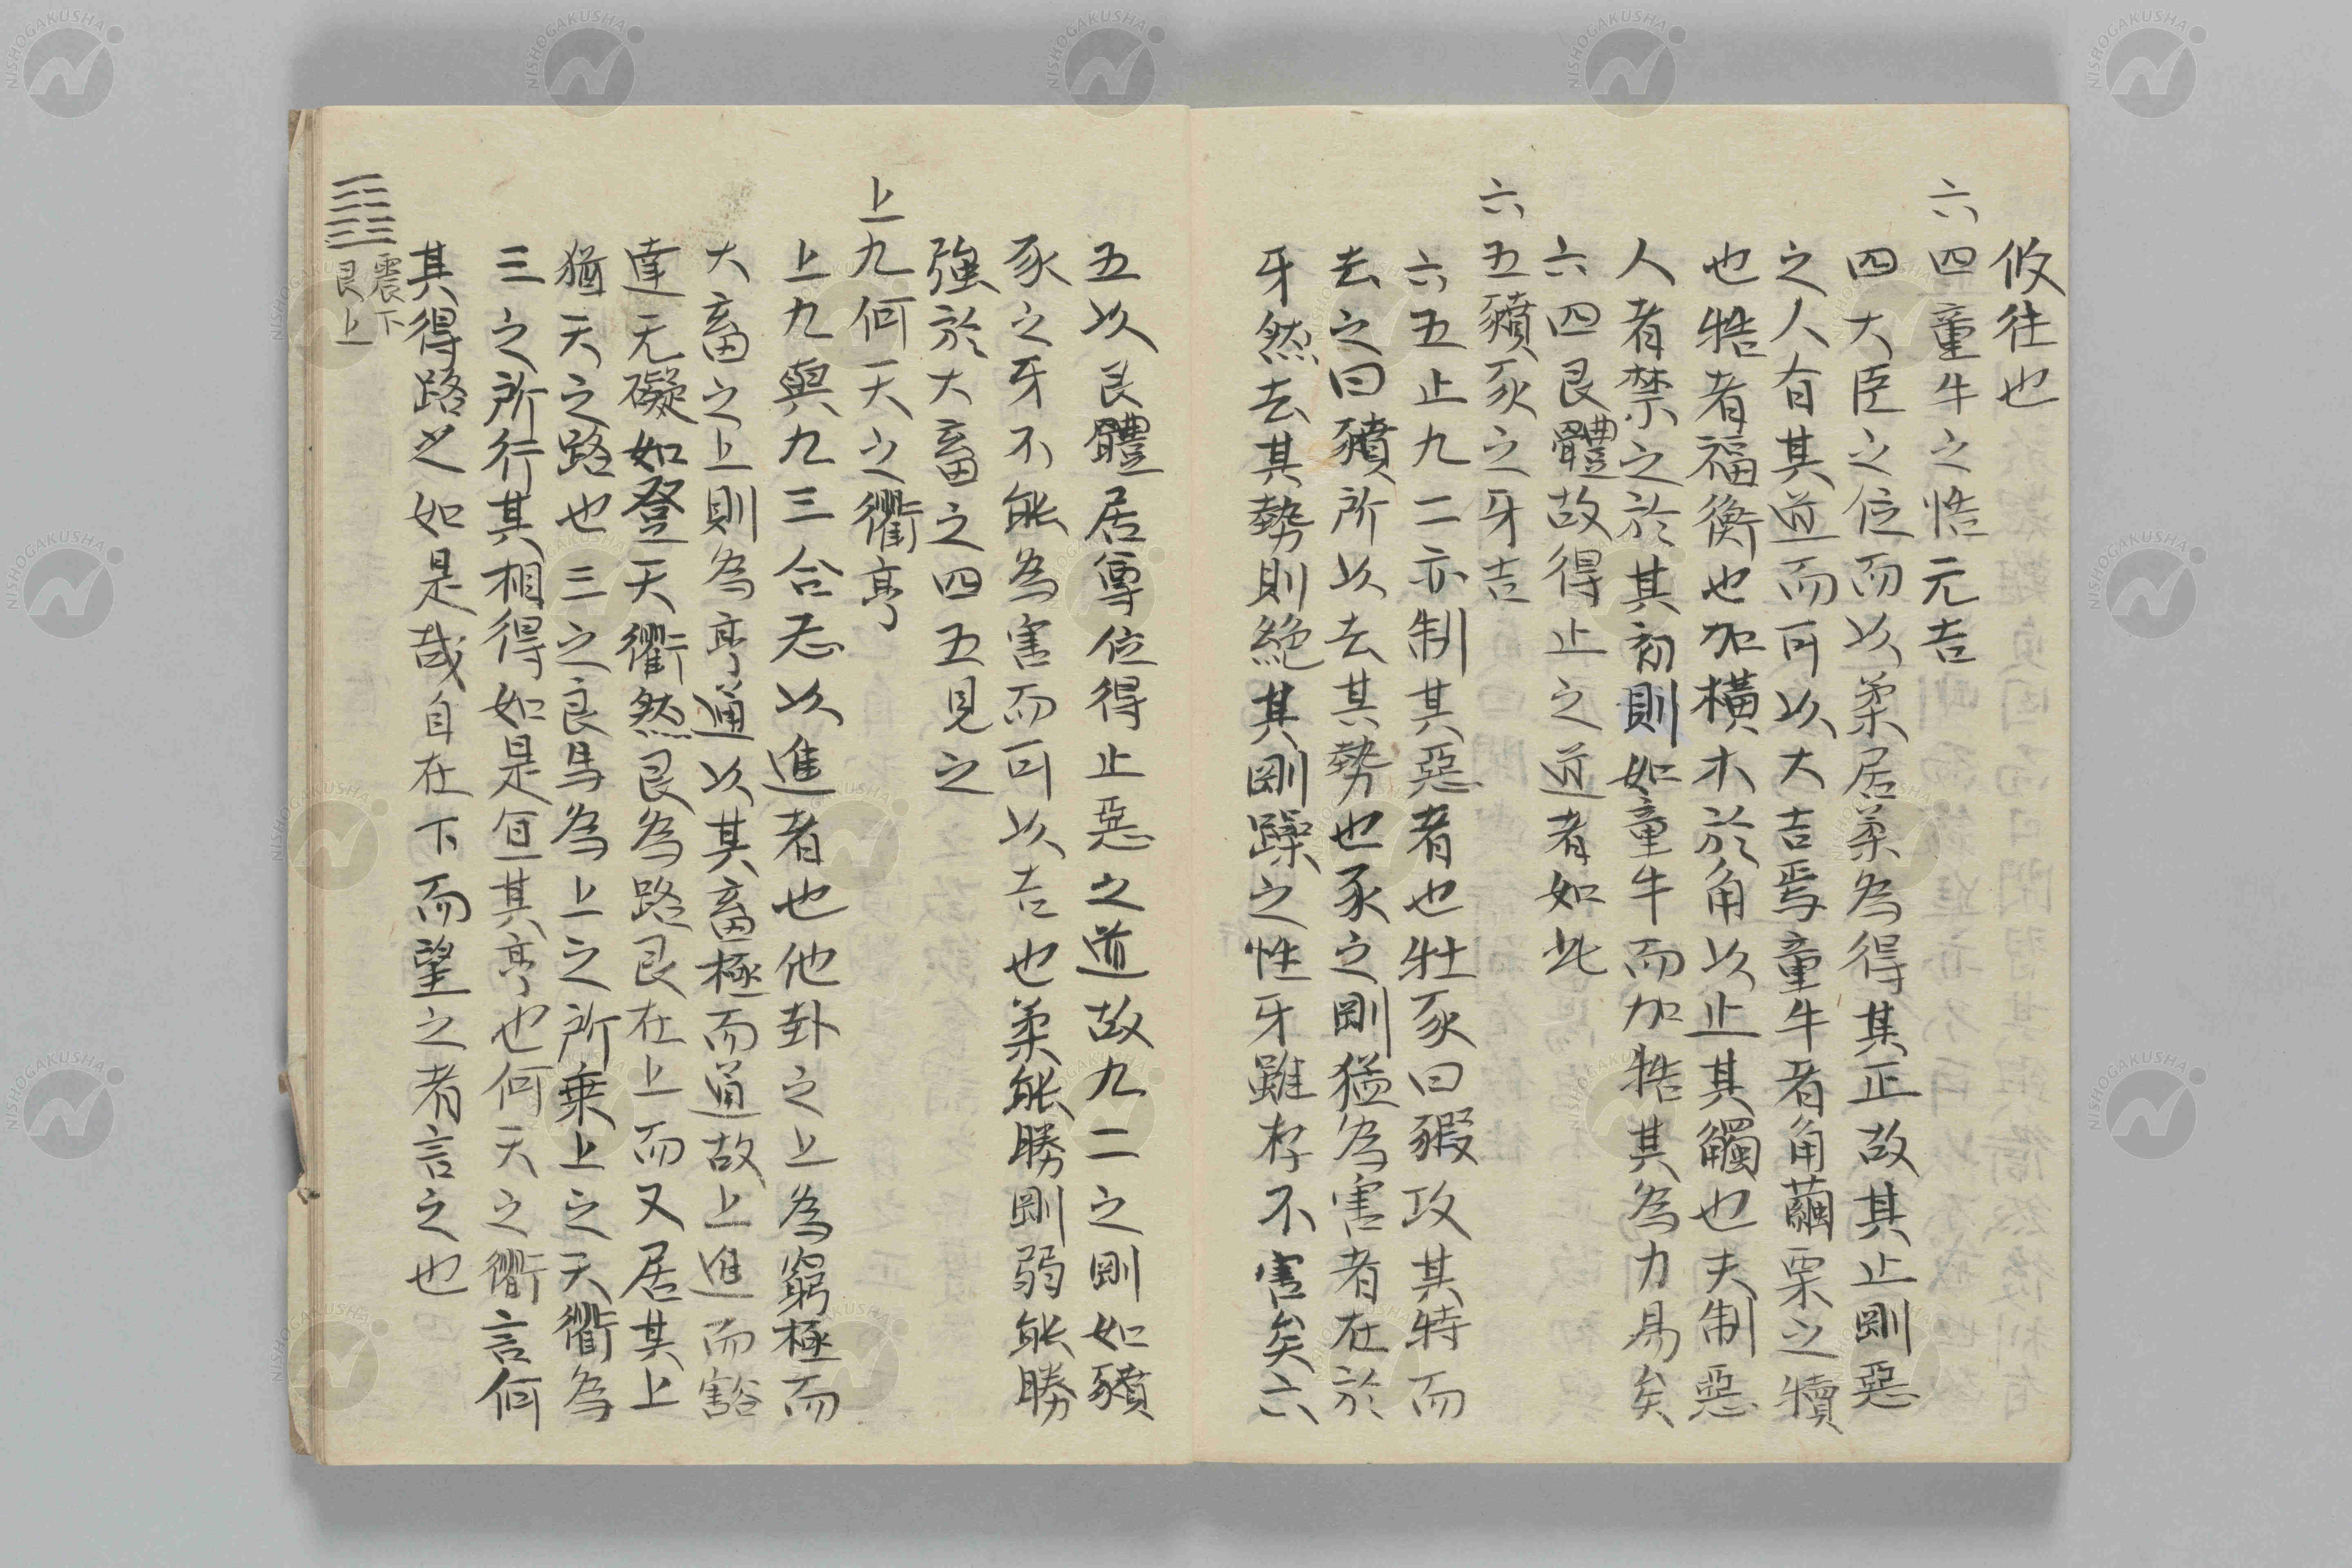 攸往也
六四童牛之牿元吉
四大臣之位而以柔居柔為得其正故其止剛惡
之人有其道而可以大吉焉童牛者角繭栗之犢
也牿者福衡也加橫木於角以止其觸也夫制惡
人者禁之於其初則如童牛而加牿其為力易矣
六四艮體故得止之道者如此
六五豶豕之牙吉
六五止九二亦制其惡者也牡豕曰豭攻其特而
去之曰豶所以去其勢也豕之剛猛為害者在於
牙然去其勢則絕其剛躁之性牙雖存不害矣六
五以艮體居尊位得止惡之道故九二之剛如豶
豕之牙不能為害而可以吉也柔能勝剛弱能勝
強於大畜之四五見之
上九何天之衢亨
上九與九三合志以進者也他卦之上為窮極而
大畜之上則為亨通以其畜極而通故上進而豁
達无礙如登天衢然艮為路艮在上而又居其上
猶天之路也三之良馬為上之所乗上之天衢為
三之所行其相得如是宜其亨也何天之衢言何
其得路之如是哉自在下而望之者言之也
震下
艮上
NISHOGAKUSHA